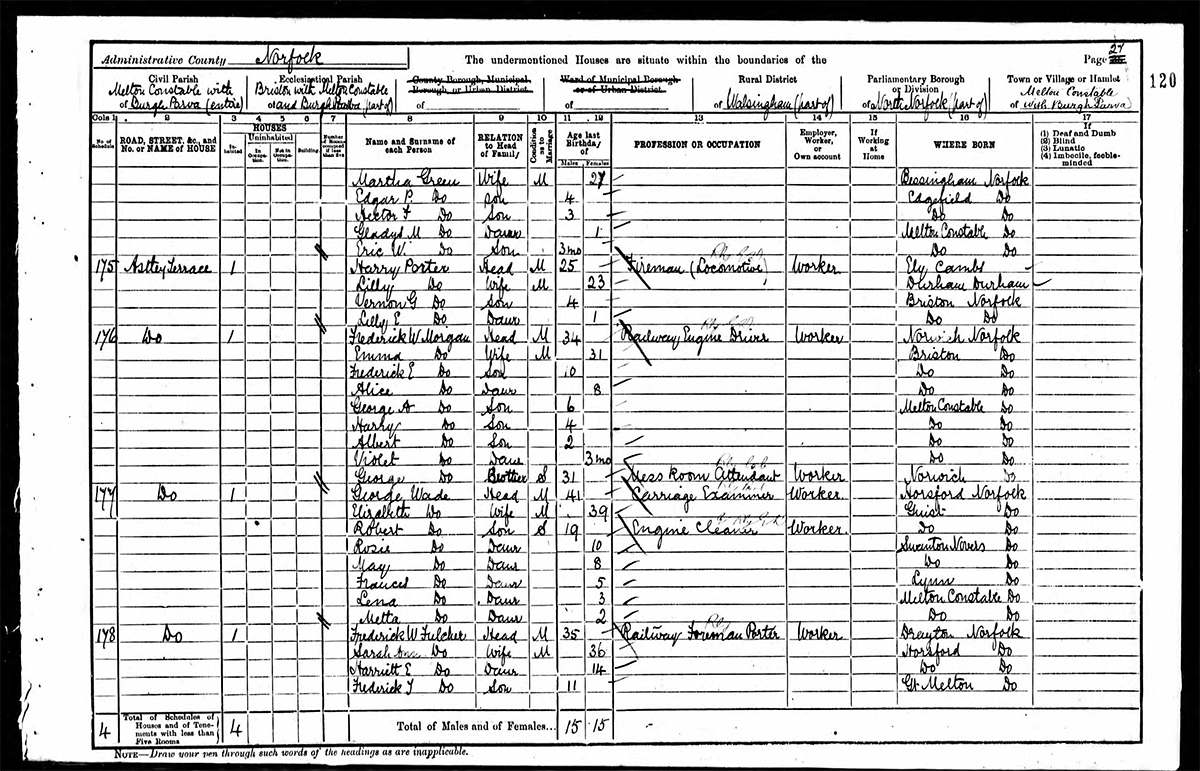 Administrative County Norfolk
The undermentioned Houses are situate within the boundaries of the
Page 27
120
Civil Parish
of Melton Constable with Burgh Parva (entire)
Ecclesiastical Parish
of Briston with Melton Constable and Burgh Parva (part of)
County Borough, Municipal Borough or Urban District
of
Ward of Municipal Borough or of Urban District
of
Rural District
of Walsingham (part of)
Parliamentary Borough or Division
of North Norfolk (part of)
Town or Village or Hamlet
of Melton Constable with Burgh Parva
Cols 1 2 3 4 5 6 7 8 9 10 11 12 13 14 15 16 17
No. of Schedule
ROAD, STREET, &c., and No. or NAME of HOUSE
HOUSES
Inhabited
Uninhabited
In Occupation.
Not in Occupation.
Building.
Number of Rooms occupied if less than five
Name and Surname of each Person
RELATION to Head of Family
Condition as to Marriage
Age last Birthday of
Males Females
PROFESSION OR OCCUPATION
Employer, Worker, or Own account
If Working at Home
WHERE BORN
If
(1) Deaf and Dumb
(2) Blind
(3) Lunatic
(4) Imbecile, feeble-minded
Martha Green Wife M 27 Bessingham Norfolk
Edgar P. Do Son 4 Edgefield Do
Hector F Do Son 3 Do Do
Gladys M Do Daur 1 Melton Constable Do
Eric W. Do Son 3mo Do Do
175 Astley Terrace 1 Harry Porter Head M 25 Fireman (Locomotive) Worker Ely Cambs
Lilly Do Wife M 23 Durham Durham
Vernon G Do Son 4 Briston Norfolk
Lilly E Do Daur 1 Do Do
176 Do 1 Frederick W Morgan Head M 34 Railway Engine Driver Worker Norwich Norfolk
Emma Do Wife M 31 Briston Do
Frederick E Do Son 10 Do Do
Alice Do Daur 8 Do Do
George A Do Son 6 Melton Constable Do
Harry Do Son 4 Do Do
Albert Do Son 2 Do Do
Violet Do Daur 3mo Do Do
George Do Brother S 31 Mess Room Attendant Worker Norwich Do
177 Do 1 George Wade Head M 41 Carriage Examiner Worker. Horsford Norfolk
Elizabeth Do Wife M 39 Guist Do
Robert Do Son S 19 Engine Cleaner Worker. Do Do
Rosie Do Daur 10 Swanton Novers Do
May Do Daur 8 Do Do
Frances Do Daur 5 Lynn Do
Lena Do Daur 3 Melton Constable Do
Metta Do Daur 2 Do Do
178 Do 1 Frederick W Fulcher Head M 35 Railway Foreman Porter Worker Drayton Norfolk
Sarah Ann Do Wife M 36 Horsford Do
Harriett E Do Daur 14 Do Do
Frederick T Do Son 11 Gt Melton Do
4 Total of Schedules of Houses and of Tenements with less than Five Rooms 4 Total of Males and of Females... 15 15
NOTE—Draw your pen through such words of the headings as are inapplicable.